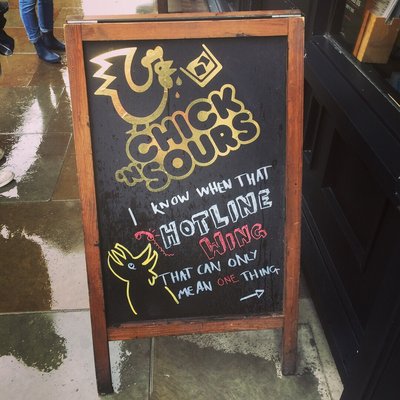 CHICK
'N'SOURS
I KNOW WHEN THAT
HOTLINE
WING
THAT CAN ONLY
MEAN ONE THING